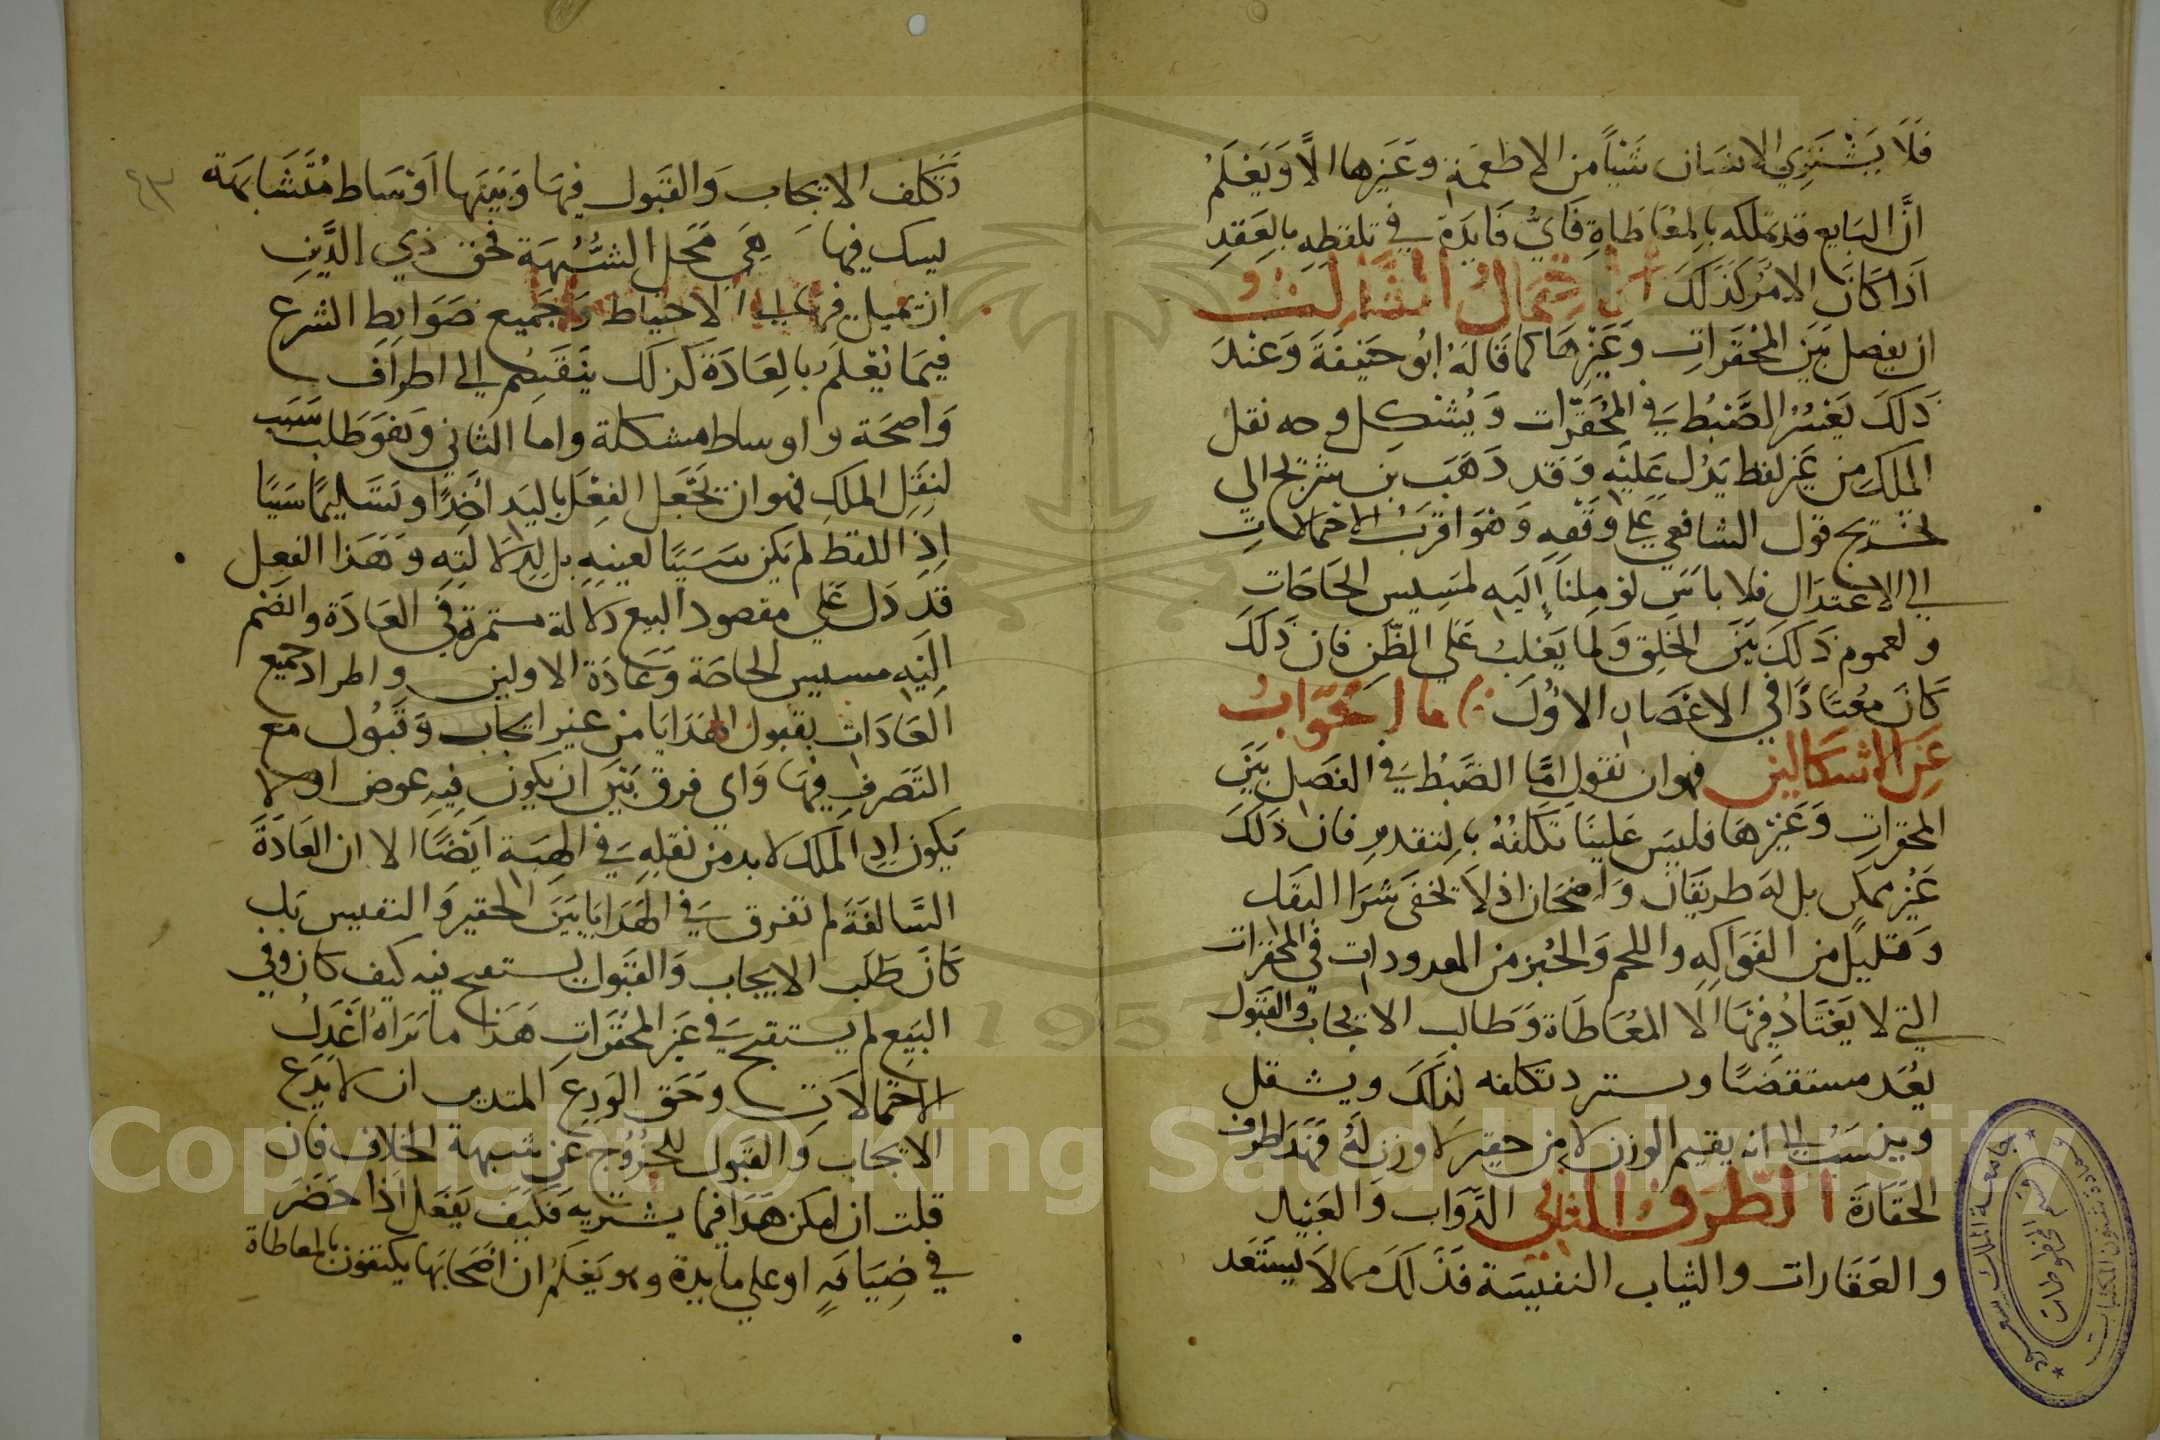 فَلَا يَشْتَرِي الانسَان شَيْئاً من الاطعمة وغَيرها الّا وَيَعْلَمُ
انَّ البَايع قد تملكه بالمعَاطَاةِ فَايُّ فَايَدةٍ في تلفظهِ بالعَقدِ
اذا كانَ الامْر كَذلكَ الاحتِمالُ الثالث
ان يفصل بَيَن المُحَقرَاتِ وَغَيْرِهَا كما قَالهُ ابُو حَنِيفَةَ وَعنْدَ
ذَلكَ يَعْسُرُ الضَّبْطُ في المُحَقّرات وَيُشْكِل وجه نقل
الملكِ مِن غَير لفظ يَدُل عَليْهِ وَقد ذَهَبَ بَن سُرَيج الي
تخريج قول الشافعي علي وَفْقِهِ وَهوَ اقرَبُ الاحتمالات
الي الاعتدَالِ فلا باسَ لوْ مِلنَا إليَه لمَسِيس الحَاجَات
ولعموم ذَلكَ بَيَن الخَلقِ وَلما يَغلبُ عَلَي الظّنِ فان ذَلكَ
كانَ مُعْتَادًا في الاعْصَارِ الاُوَل فاما الجَوَابُ
عَنِ الاشكالين فهوان نقول امَّا الضَّبْطُ في الفصل بَيَن
المحقرات وَغَيْرهَا فليسَ عَلينَا تكلفُهُ بالتقدير فان ذَلكَ
غَيْر ممكن بل له طرفَان وَاضحَان اذ لا تخفَي شرا البَقل
وَقليل من الفوَاكه واللحم وَالخُبز من المعدودات في المحقرات
التي لا يَعْتَادُ فيهَا الّا المعَاطاة وَطالب الايجاب والقبُول
يُعَد مستقصيًا ويستبرد تكلفه لذلكَ ويثقل
وينسَبُ الي انه يقيم الوزن لامر حقير لا وزن لهُ فهَذا طرف
الحقارَة الطّرَفُ الثاني الدوَاب وَالعَبيد
والعَقَارات والثياب النفيسَة فَذلكَ مما لا يستَبعَد
تكلف الايجاب وَالقبول فيهَا وَبَيَنهَا اوْسَاط مُتَشَابَهة
يسك فيها هِيَ محَل الشُّبْهَة فحق ذي الدِّينِ
ان يميل فيها الي الاحتياط وَجَميع ضَوَابِطِ الشرع
فيمَا يُعْلَمُ بالعَادَة كذلك ينقسِم الي اطراف
وَاضحَة واوساط مشكلة واما الثاني وَهوَ طَلب سَبَب
لنقلِ الملكِ فهوان تجعل الفِعْلَ باليَد أخذًا وتسَليمًا سَببًا
اذِ اللفظ لم يكن سَببًا لعينِهِ بل لدِلالَتِهِ وَهَذا الفعل
قد دَل علي مقصود البيع دلالة مستمرة في العَادَة وانضم
اليَه مسيس الحاجَة وَعَادَة الاولين واطراد جميع
العَادَات بقبول الهدَايَا من غير ايجاب وَقبُول مع
التَصرفِ فيهَا وَاي فرق بَيَن ان يكون فيهِ عوض او لا
يَكون اذِ المَلك لا بد من نقله في الهِبة ايْضًا الا ان العَادَةَ
السَّالفَةَ لم تفرق في الهَدَايَا بَيَن الحقير وَالنفيس بَل
كانَ طَلَب الايجاب وَالقبُول يستقبح فيه كيف كان وفي
البَيع لم يستقبح في غَير المُحَقرَات هَذا ما نرَاهُ اعْدَلُ
الاحتمالات وَحَق الوَرِعِ المتدين ان لا يَدَعَ
الايجاب وَالقبول للخُرُوج عَن شبهة الخلاف فان
قلت ان امكن هَذا فيما يشتريهِ فكيفَ يَفعَل اذا حَضَرَ
في ضيَافةٍ او علي مايدة وهو يَعْلمُ ان اصحَابَهَا يكتفون بالمعاطاة
٤٣
جامعة الملك سعود
عمادة شئون المكتبات
قسم المخطوطات
1957
Copyright © King Saud University